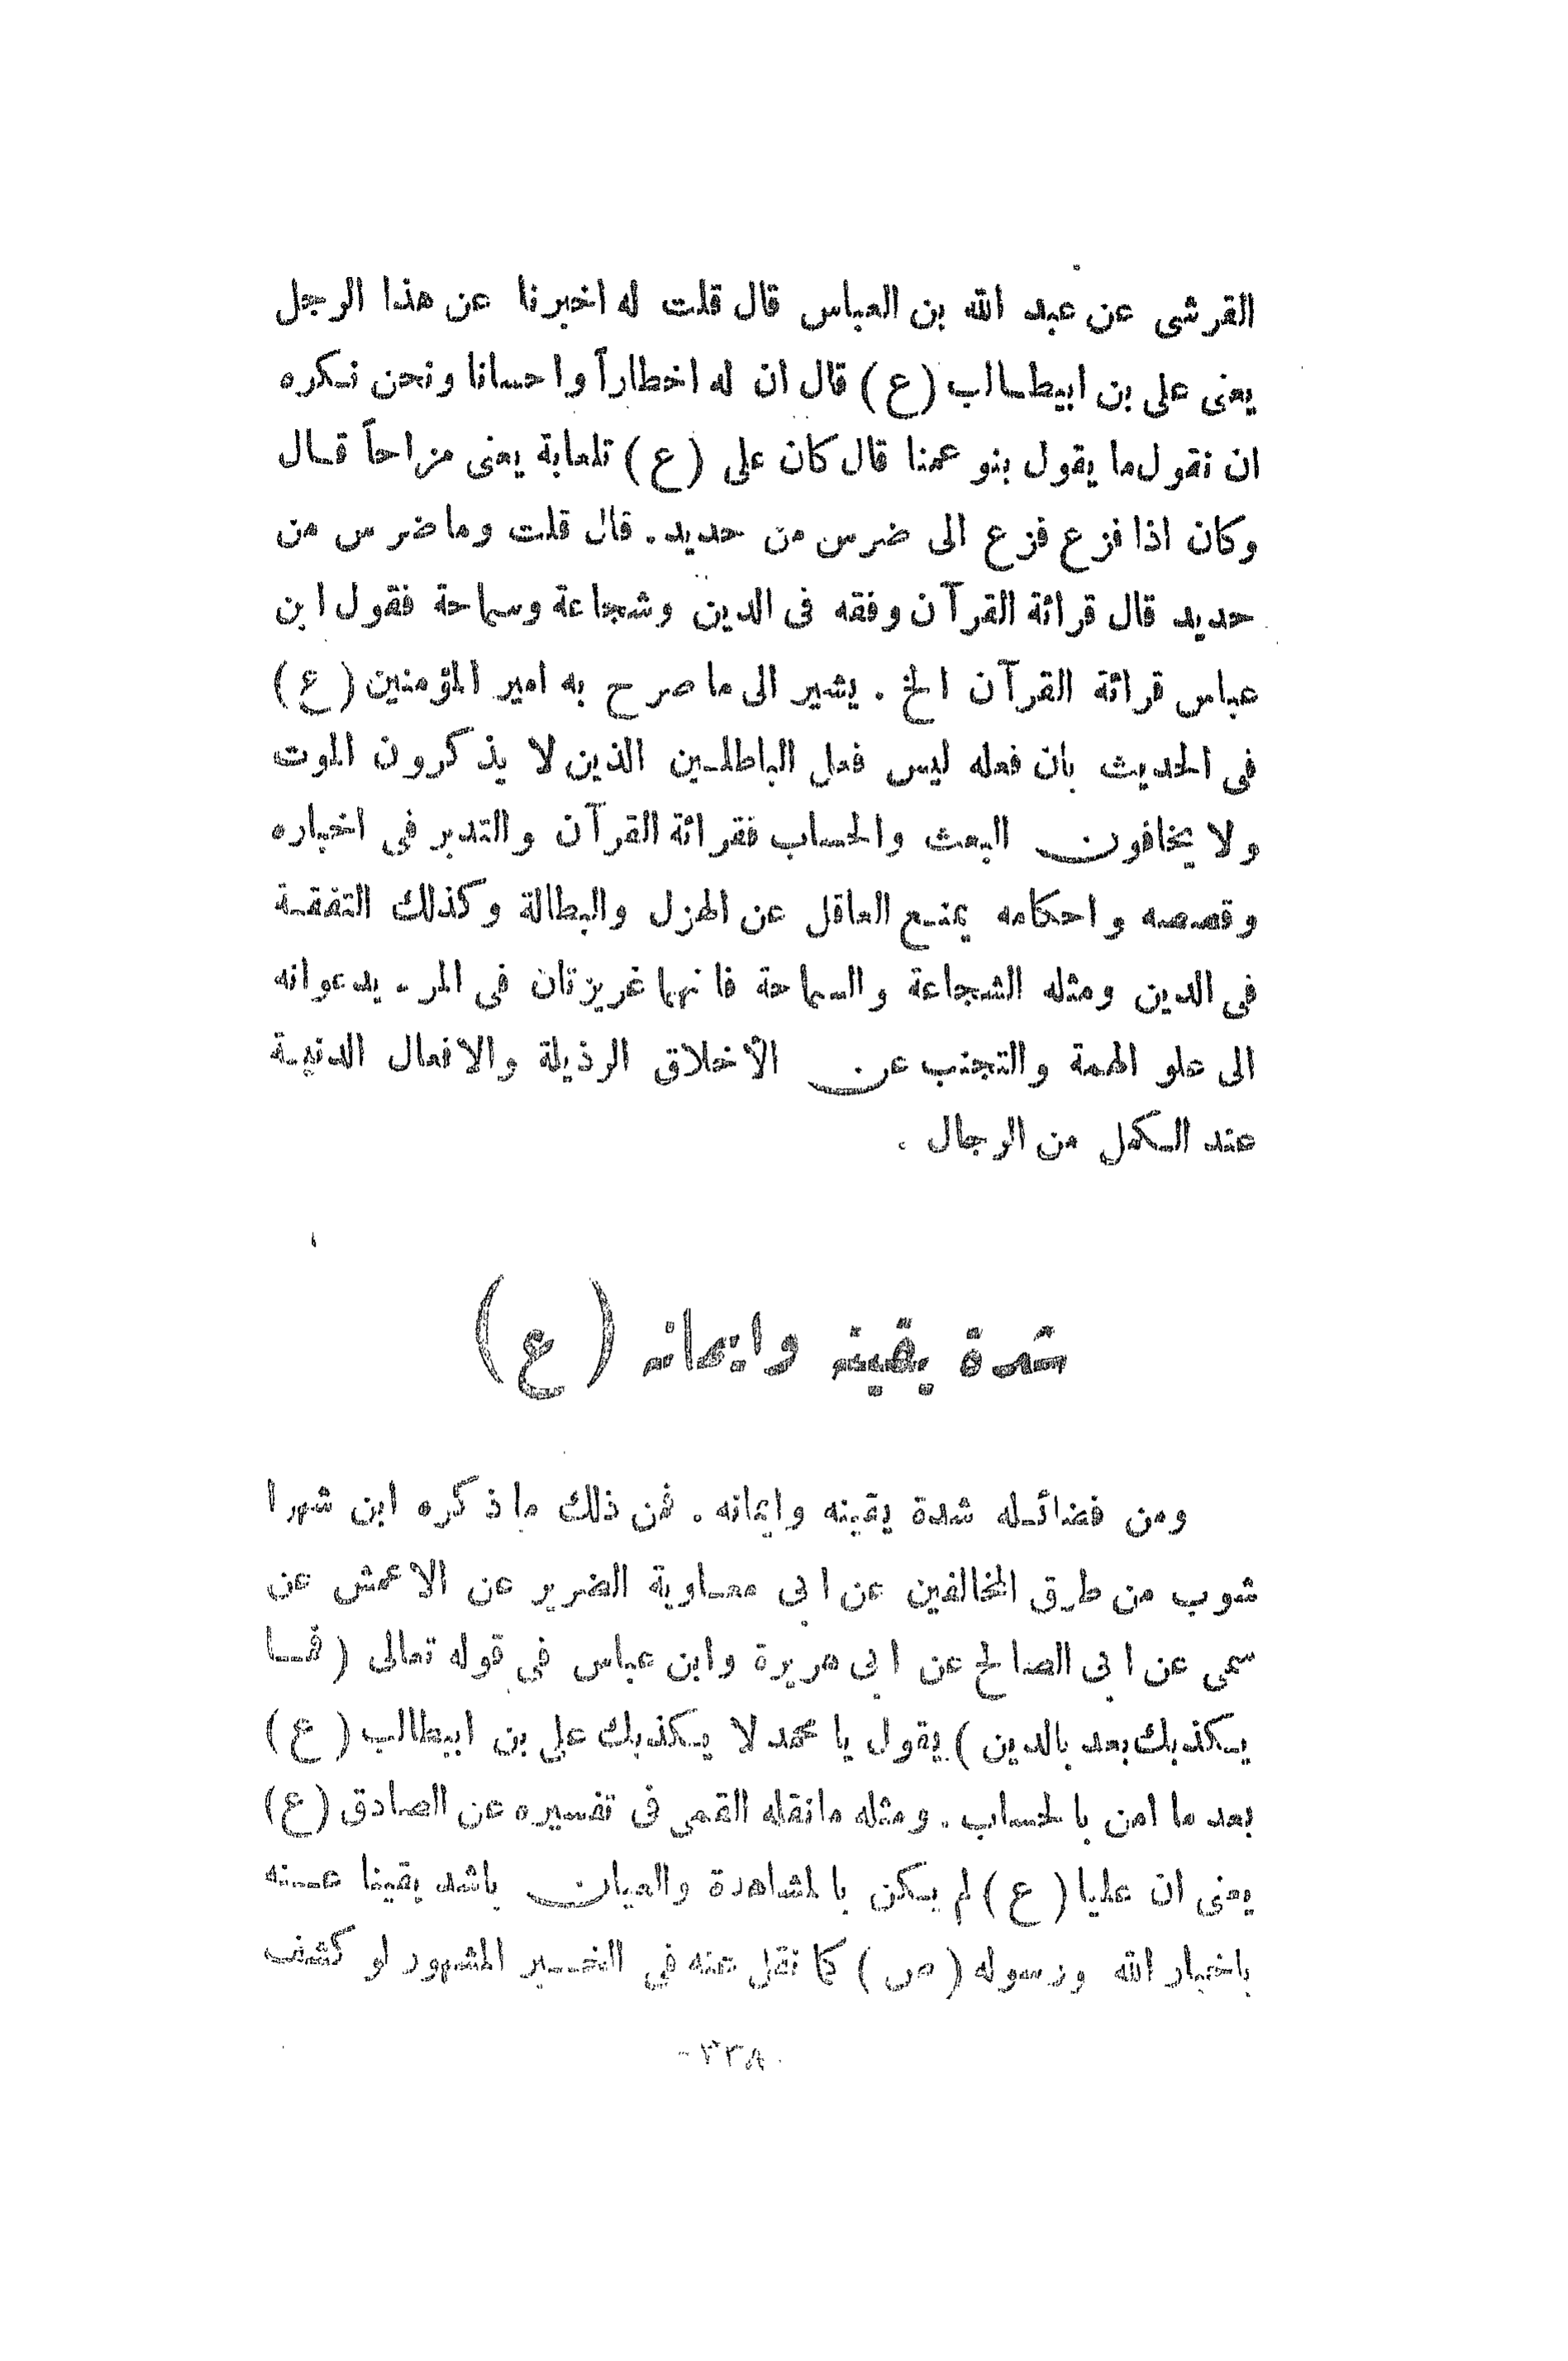 القرشى عن عبد الله بن العباس قال قلت له اخبرنا عن هذا الرجل
يعنى على بن ابيطالب (ع) قال ان له اخطاراً واحسانا ونحن نكره
ان نقول ما يقول بنو عمنا قال كان على (ع) تلعابة يعنى مزاحاً قال
وكان اذا فزع فزع الى ضرس من حديد. قال قلت وما ضرس من
حديد قال قرائة القرآن وفقه فى الدين وشجاعة وسماحة فقول ابن
عباس قرائة القرآن الخ . يشير الى ما صرح به امير المؤمنين (ع)
فى الحديث بان فعله ليس فعل الباطلين الذين لا يذكرون الموت
ولا يخافون البعث والحساب فقرائة القرآن والتدبر فى اخباره
وقصصه واحكامه يمنع العاقل عن الهزل والبطالة وكذلك التفقة
فى الدين ومثله الشجاعة والسماحة فانهما غريزتان فى المرء يدعوانه
الى علو الهمة والتجنب عن الأخلاق الرذيلة والافعال الدنية
عند الكمل من الرجال .
شدة يقينه وايمانه (ع)
ومن فضائله شدة يقينه وايمانه . فمن ذلك ما ذكره ابن شهرا
شوب من طرق المخالفين عن ابى معاوية الضرير عن الاعمش عن
سمى عن ابى الصالح عن ابى هريرة وابن عباس فى قوله تعالى (فما
يكذبك بعد بالدين) يقول يا محمد لا يكذبك على بن ابيطالب (ع)
بعد ما امن بالحساب . ومثله ما نقله القمى فى تفسيره عن الصادق (ع)
يعنى ان عليا (ع) لم يكن بالمشاهدة والعيان باشد يقينا عنه
باخبار الله ورسوله (ص) كما نقل عنه فى الخبر المشهور لو كشف
-٣٣٨-